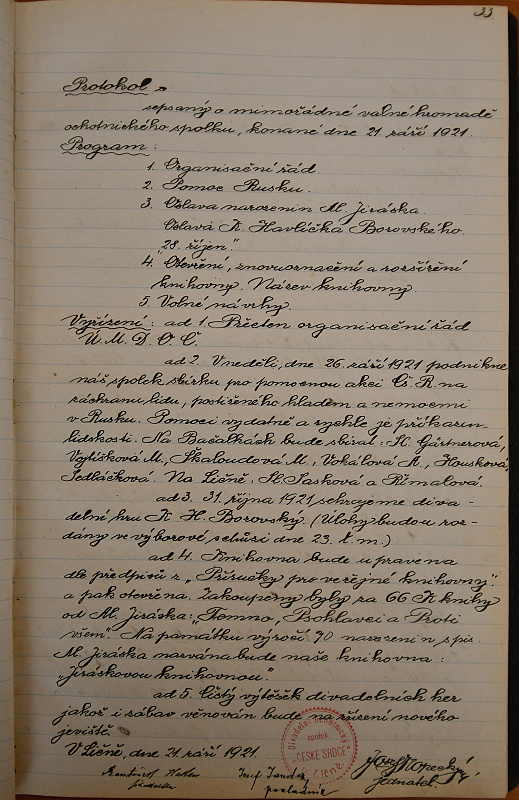 33
Protokol
sepsaný o mimořádné valné hromadě
ochotnického spolku, konané dne 21 září 1921.
Program:
1. Organisační řád.
2. Pomoc Rusku.
3. Oslava narozenin Al. Jiráska.
Oslava K. Havlíčka Borovského.
"28. říjen".
4. Otevření, znovuoznačení a rozšíření
knihovny. Název knihovny.
5. Volné návrhy.
Vyřízení: ad 1. Přečten organisační řád
Ú. M. D. O. Č.
ad 2. V neděli, dne 26. září 1921 podnikne
náš spolek sbírku pro pomocnou akci Č. R. na
záchranu lidu, postiženého hladem a nemocemi
v Rusku. Pomoci vydatně a rychle je příkazem
lidskosti. Na Bašalkách bude sbírat: K. Gärtnerová,
Vojtíšková M., Skaloudová M., Vokálová A., Housková,
Sedláčková. Na Lične, Sasková a Římalová.
ad 3. 31. října 1921 sehrajeme diva-
delní hru K. H. Borovský. (Úlohy budou roz-
dány ve výborové schůzi dne 23. t. m.)
ad 4. Knihovna bude upravena
dle předpisů z "Příručky pro veřejné knihovny"
a pak otevřena. Zakoupeny byly za 66 K knihy
od Al. Jiráska: "Temno", Bohlavci a Proti
všem". Na památku výročí 70 narozenin spis.
Al. Jiráska nazvána bude naše knihovna:
"Jiráskovou knihovnou."
ad 5. Čistý výtěžek divadelních her
jakož i zábav věnován bude na zřízení nového
jeviště.
V Ličně, dne 21. září 1921.
Divadelní ochotnický
spolek
"ČESKÉ SRDCE"
v Ličně.
předseda
Josef Janda
pokladník
Josef Kopecký
jednatel.